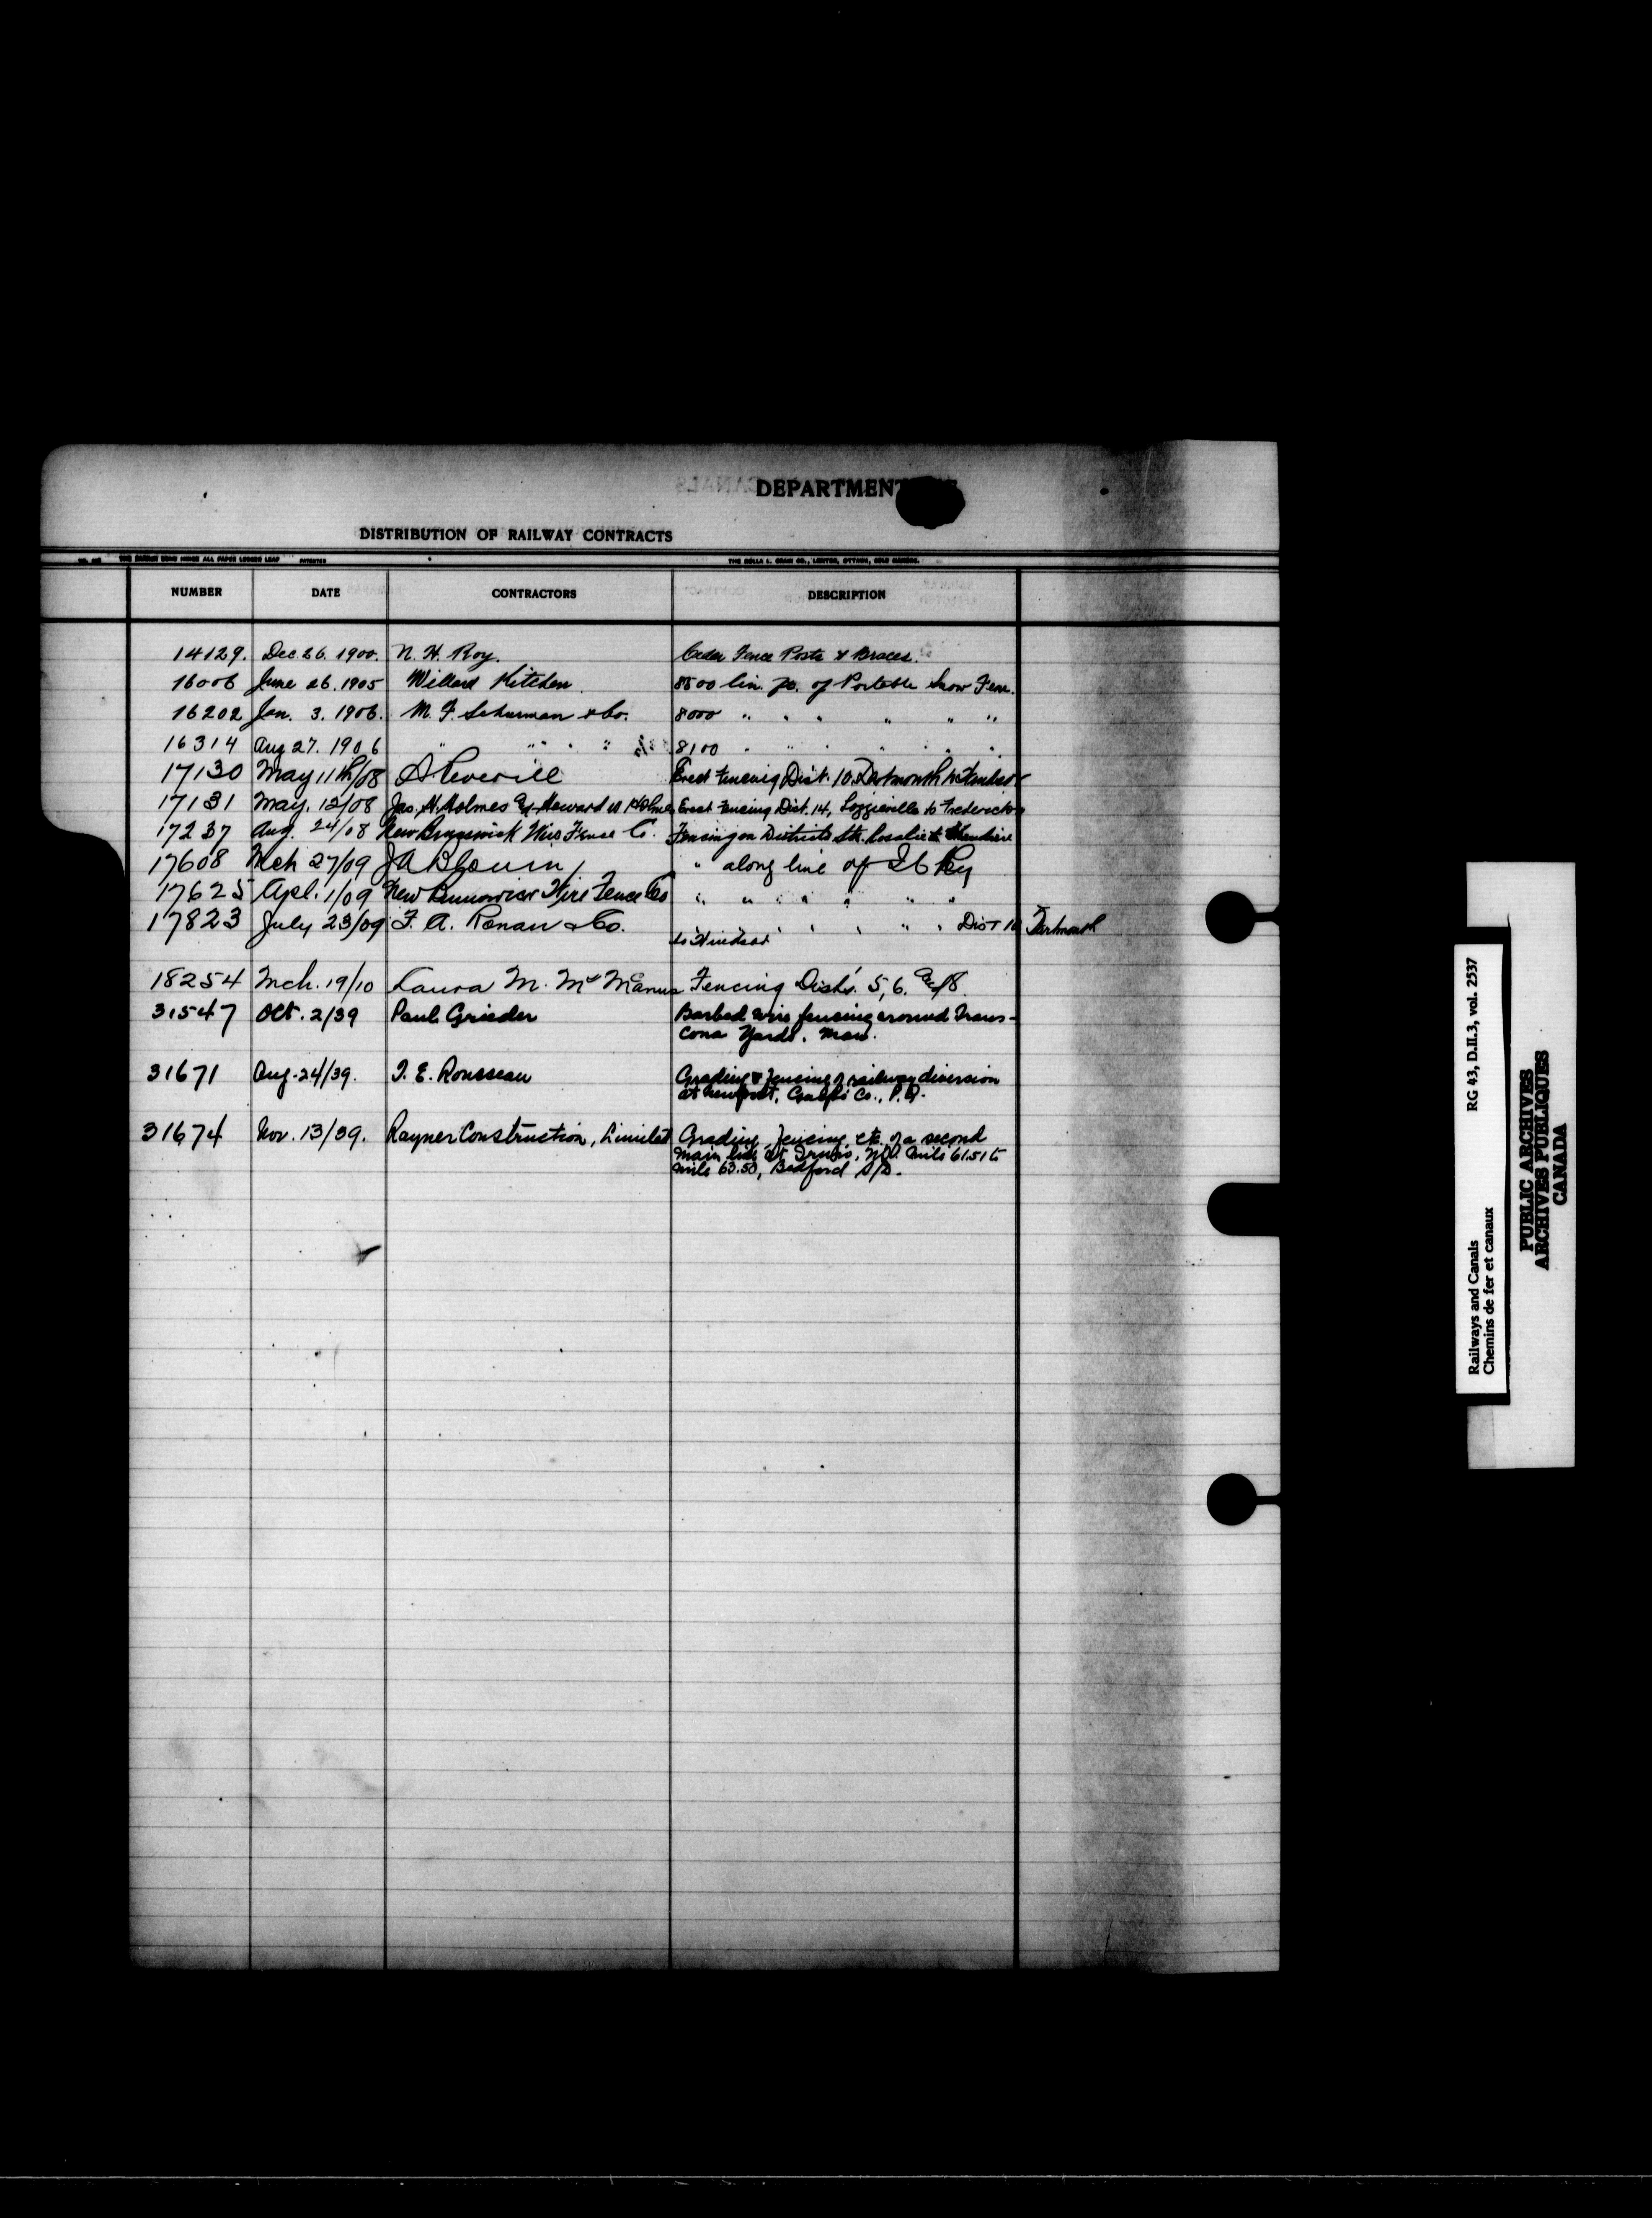 DEPARTMENT
DISTRIBUTION OF RAILWAY CONTRACTS
NUMBER DATE CONTRACTORS DESCRIPTION
14129. Dec. 26. 1900. N. H. Roy. Cedar Fence Posts & Braces.
16006 June 26. 1905 Willard Kitchen. 8500 lin. of Portable Snow Fence.
16202 Jan. 3. 1906. M. F. Schurman & Co. 8000 " " " " " "
16314 Aug 27. 1906 " " " " 8100 " " " " " "
17130 May 11th/08 Erect Fencing Dist. 10. Dartmouth to Windsor
17131 May. 12/08 Jas. H. Holmes & Howard Holmes Erect Fencing Dist. 14, Loggieville to Fredericton
17237 Aug. 24/08 New Brunswick Wire Fence Co. Fencing on Districts Ste. Rosalie to Chaudiere
17608 Mch 27/09 J A Blouin " along line of I C Ry
17625 Apl. 1/09 New Brunswick Wire Fence Co " " " " " "
17823 July 23/09 F. A. Ronan & Co. " " " " " " Dist 10 Dartmouth
to Windsor
18254 Mch. 19/10 Laura M. McManus Fencing Dists. 5, 6. & 8
31547 Oct. 2/39 Paul Grieder Barbed wire fencing around Trans-
cona Yards. Man.
31671 Aug. 24/39. J. E. Rousseau Grading & fencing of railway diversion
at Newport, Gaspé Co., P.Q.
31674 Nov. 13/39. Rayner Construction, Limited Grading, fencing, etc. of a second
main line at Truro, N.S. Mile 61.51 to
Mile 63.50, Bedford S/D.
Railways and Canals RG 43, D.II.3, vol. 2537
Chemins de fer et canaux
PUBLIC ARCHIVES
ARCHIVES PUBLIQUES
CANADA